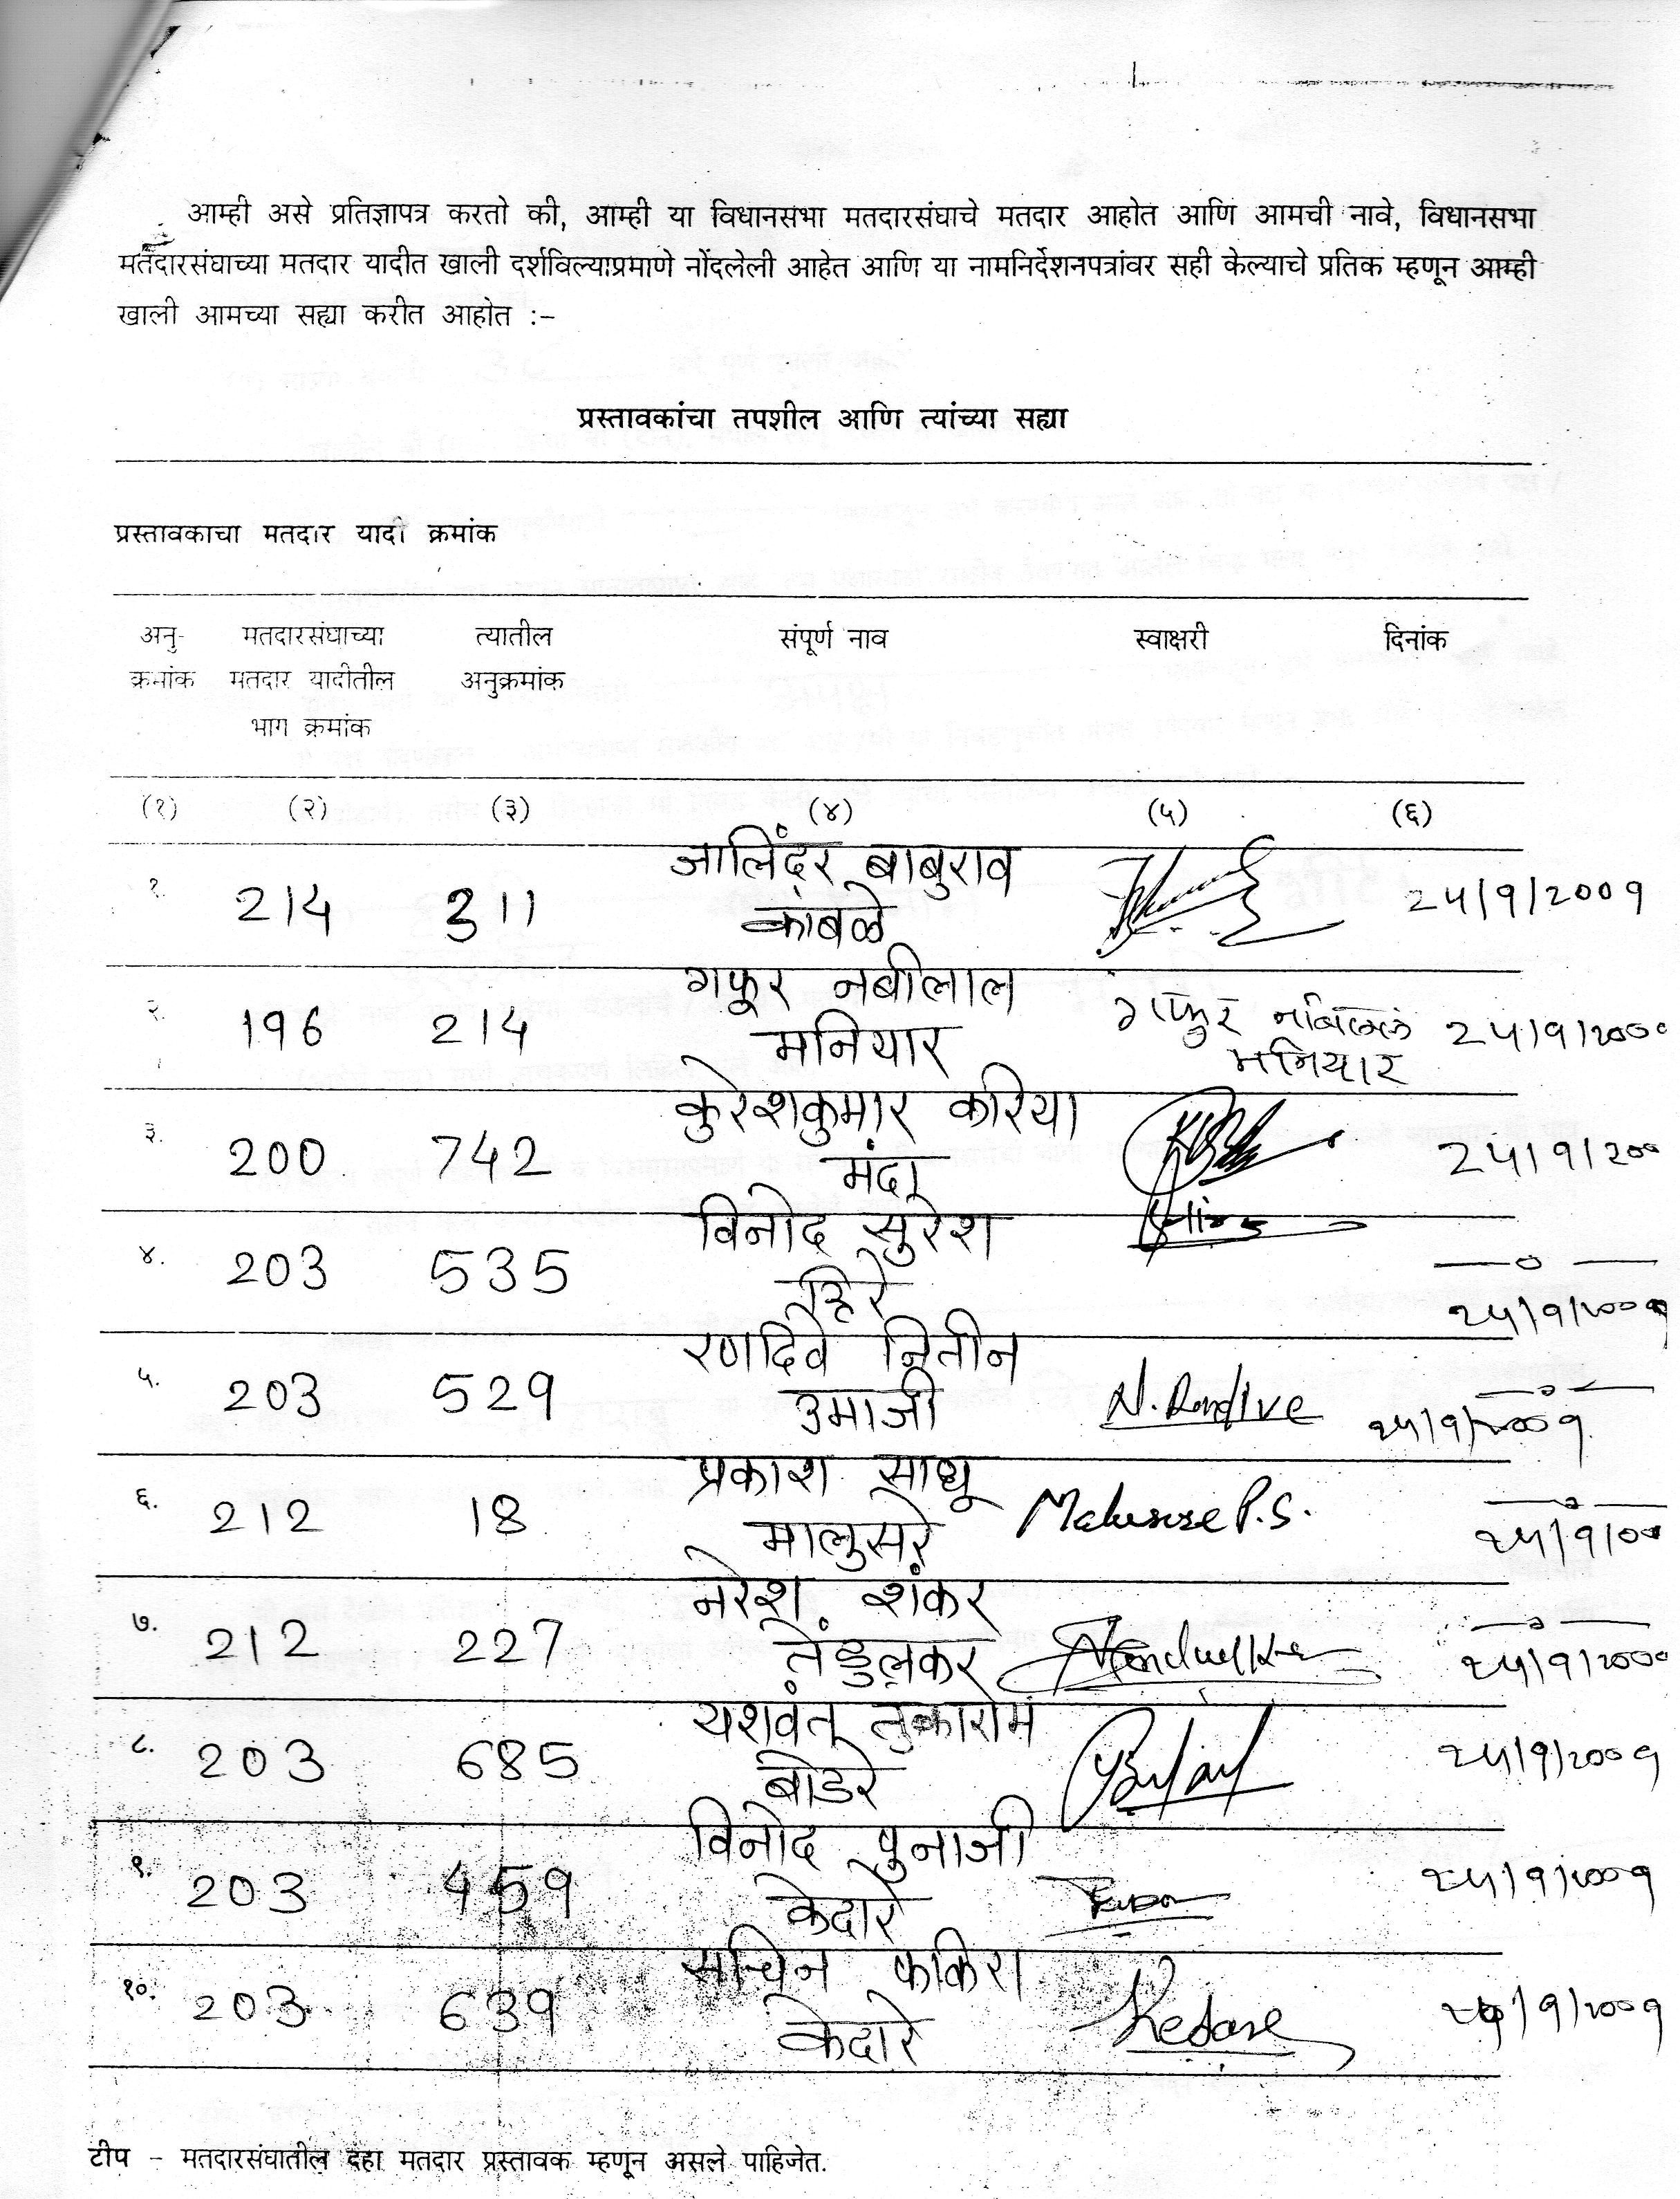 आम्ही असे प्रतिज्ञापत्र करतो की, आम्ही या विधानसभा मतदारसंघाचे मतदार आहोत आणि आमची नावे, विधानसभा
मतदारसंघाच्या मतदार यादीत खाली दर्शविल्याप्रमाणे नोंदलेली आहेत आणि या नामनिर्देशनपत्रांवर सही केल्याचे प्रतिक म्हणून आम्ही
खाली आमच्या सह्या करीत आहोत :-
प्रस्तावकांचा तपशील आणि त्यांच्या सह्या
प्रस्तावकाचा मतदार यादी क्रमांक
अनु- मतदारसंघाच्या त्यातील संपूर्ण नाव स्वाक्षरी दिनांक
क्रमांक मतदार यादीतील अनुक्रमांक
भाग क्रमांक
(१) (२) (३) (४) (५) (६)
जालिंदर बाबुराव
१. 214 311 कांबळे 24/9/2009
गफूर नबीलाल
२. 196 214 मनियार गफुर नबिलाल 24/9/200
मनियार
कुरेशकुमार करिया
३. 200 742 मंदा 24/9/200
विनोद सुरेश
४. 203 535 हिरे
24/9/2009
रणदिवे नितीन
५. 203 529 उमाजी N. Randive 24/9/2009
प्रकाश साधू
६. 212 18 मालुसरे Malusare P.S. 24/9/09
नरेश शंकर
७. 212 227 तेंडुलकर 24/9/200
यशवंत तुकाराम
८. 203 685 बोडरे 24/9/2009
विनोद पुनाजी
९. 203 459 केदारे 24/9/2009
सचिन फकिरा
१०. 203 639 केदारे Kedare 24/9/2009
टीप - मतदारसंघातील दहा मतदार प्रस्तावक म्हणून असले पाहिजेत.